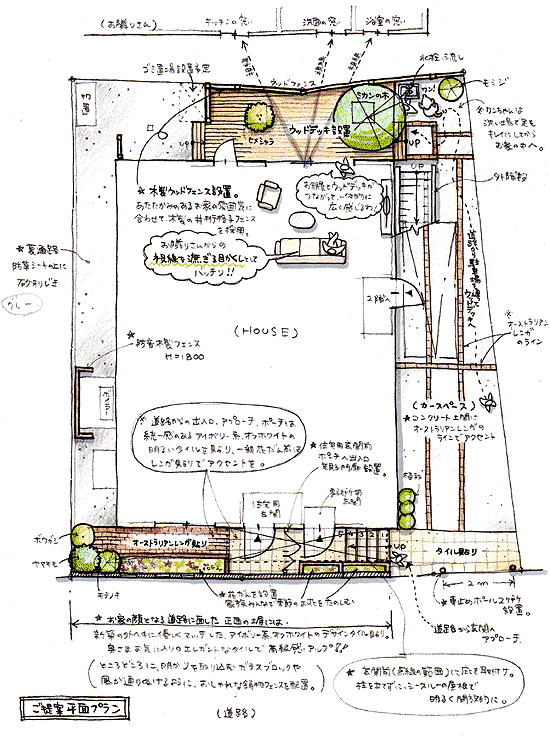 (お隣りさん)
キッチンの窓
洗面の窓
浴室の窓
ゴミ置き場設置予定
ウッドフェンス
視線
視線
視線
水栓・流し
モミジ
物置
ミカンの木
ワン!
ウッドデッキ設置
ヒメシャラ
UP
UP
※ワンちゃんは
洗い場で足を
キレイにしてから
お家の中へ。
外階段
★木製ウッドフェンス設置。
あたたかみのあるお家の雰囲気に
合わせ、木製の井桁格子フェンス
を採用。
お部屋とウッドデッキが
つながって、一体的に
広く感じるわ!
お隣りさんからの
視線を遮ぎる目かくしとして
バッチリ!!
★裏通路
防草シートの上に
砂利じき
グレー
道路から駐車場を通って
ウッドデッキへ
2階へ
(HOUSE)
※オーストラリアン
レンガ
のライン
★防音木製フェンス
H=1800
ボイラー
(カースペース)
★コンクリート土間に
オーストラリアンレンガの
ラインでアクセント
※道路からの出入口、アプローチ、ポーチは
統一感のあるアイボリー系、オフホワイトの
明るいタイルを貼り、一部花だん前は
レンガ貼りでアクセントを。
★住宅用玄関前
ポーチへ出入口
設置。
住宅用
玄関
玄関
植栽
ボックウッド
ヤマモモ
キンモクセイ
オーストラリアンレンガ貼り
UP
タイル貼り
2m
★花だんを設置
家族みんなで季節のお花をたのしむ
★車止めポール2ケ所
設置。
道路から玄関へ
アプローチ
★お家の顔となる道路に面した正面の塀には、
新築の外ヘキに優しくマッチした、アイボリー系、オフホワイトのデザインタイル貼り。
奥さまお気に入りのエレガントなタイルで高級感アップ!!
(ところどころに、明かりを取り込むガラスブロックや
風が通りぬけるように、おしゃれな鋳物フェンスを配置。)
★玄関前(点線の範囲)に庇を取付け。
柱を立てずに、シースルーの屋根で
明るく開放的に。
ご提案平面プラン
(道路)